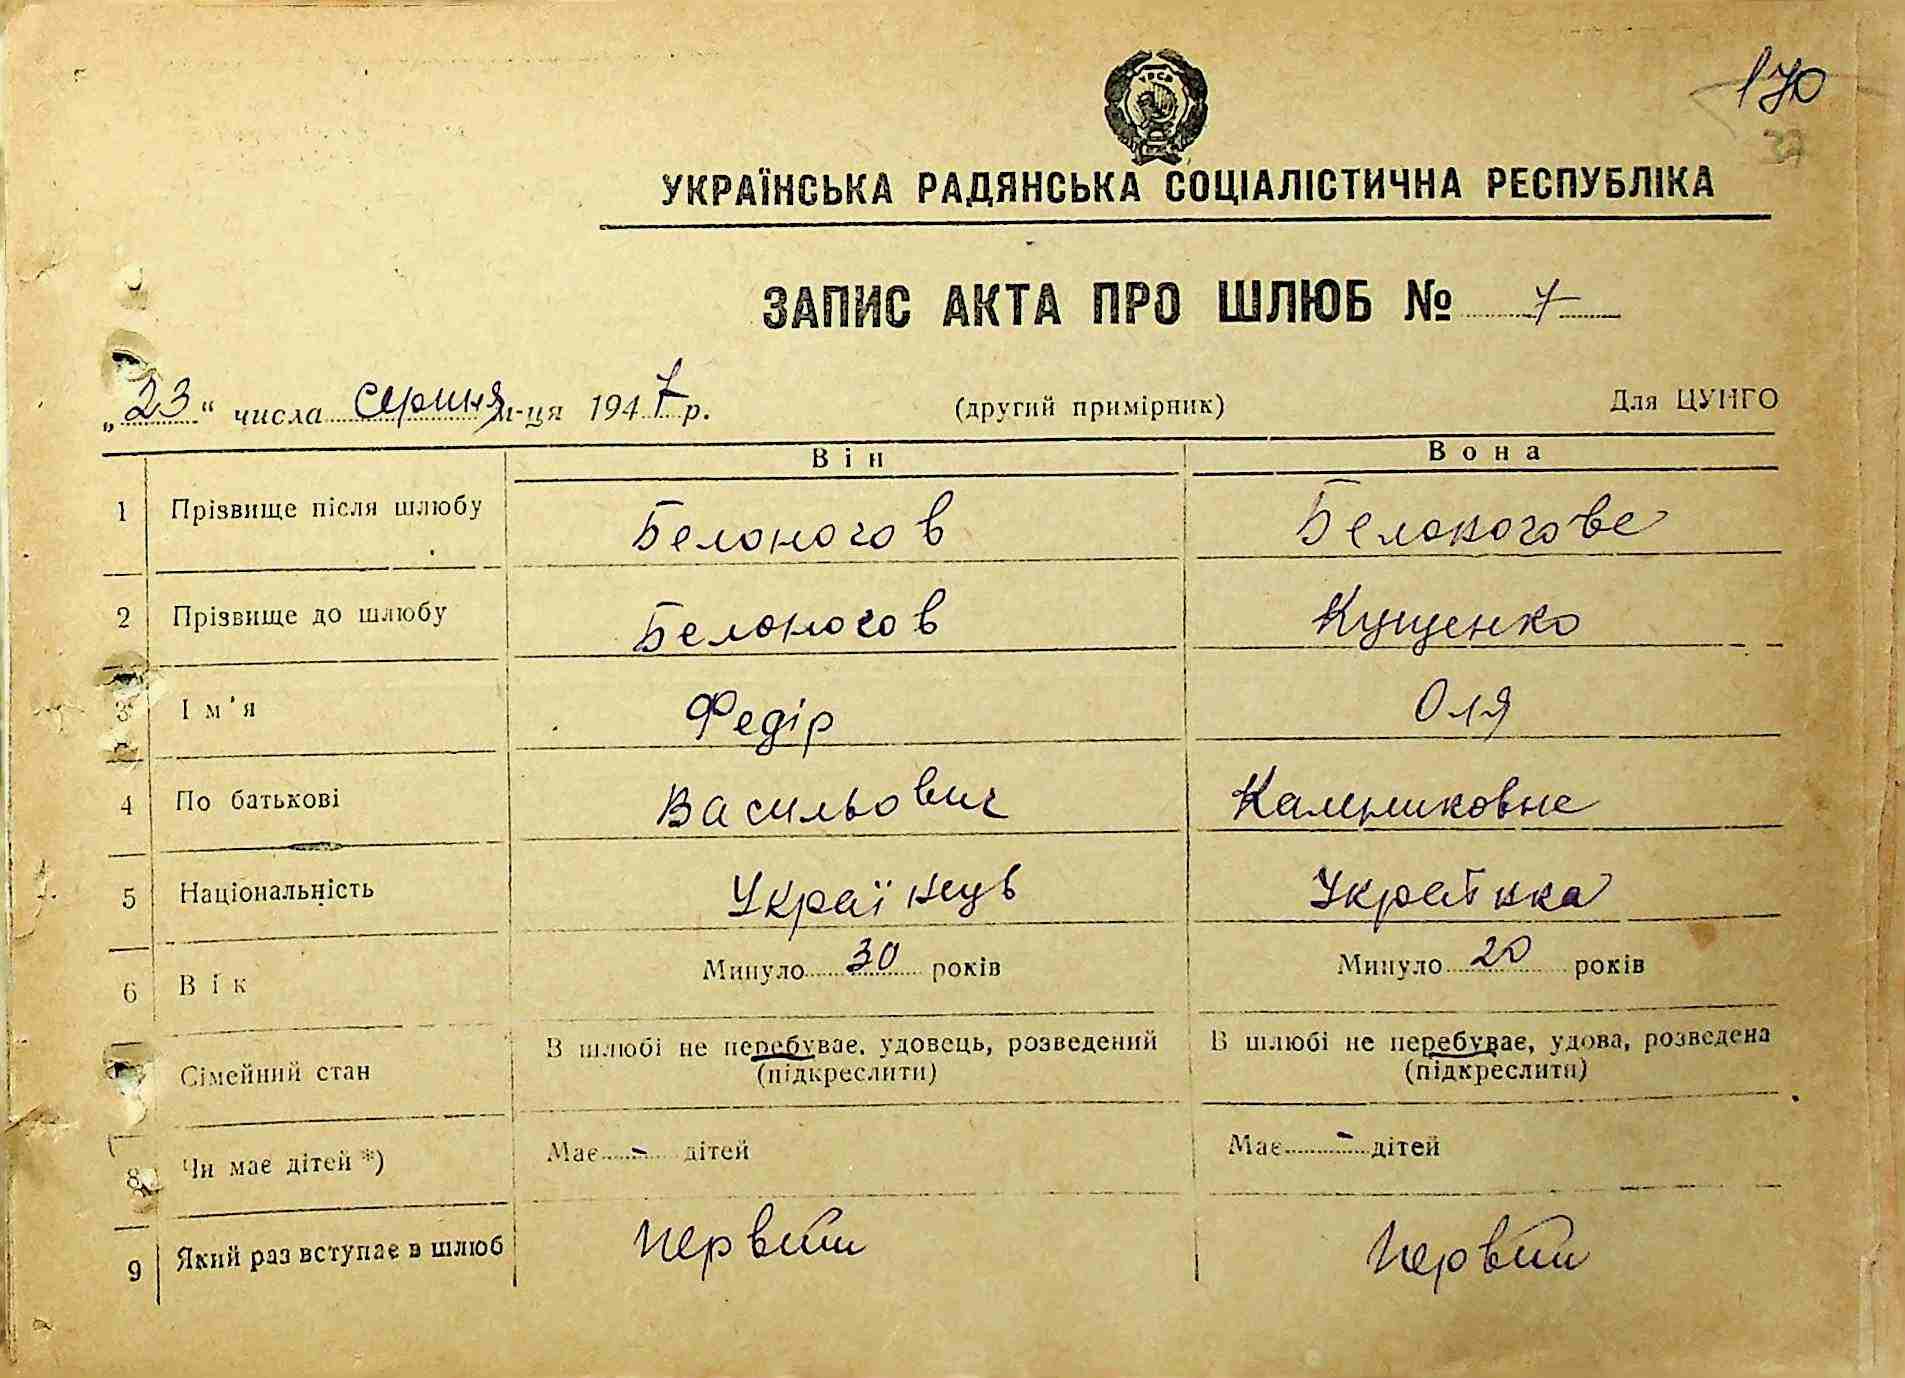 170
УКРАЇНСЬКА РАДЯНСЬКА СОЦІАЛІСТИЧНА РЕСПУБЛІКА
ЗАПИС АКТА ПРО ШЛЮБ № 7
„23“ числа серпня м-ця 1947 р. (другий примірник) Для ЦУНГО
Він Вона
1 Прізвище після шлюбу Белоногов Белоногова
2 Прізвище до шлюбу Белоногов Кущенко
3 Ім'я Федір Оля
4 По батькові Васильович
5 Національність Українець Українка
6 Вік Минуло 30 років Минуло 20 років
В шлюбі не перебуває, удовець, розведений В шлюбі не перебуває, удова, розведена
Сімейний стан (підкреслити) (підкреслити)
8 Чи має дітей *) Має - дітей Має - дітей
9 Який раз вступає в шлюб первий первий